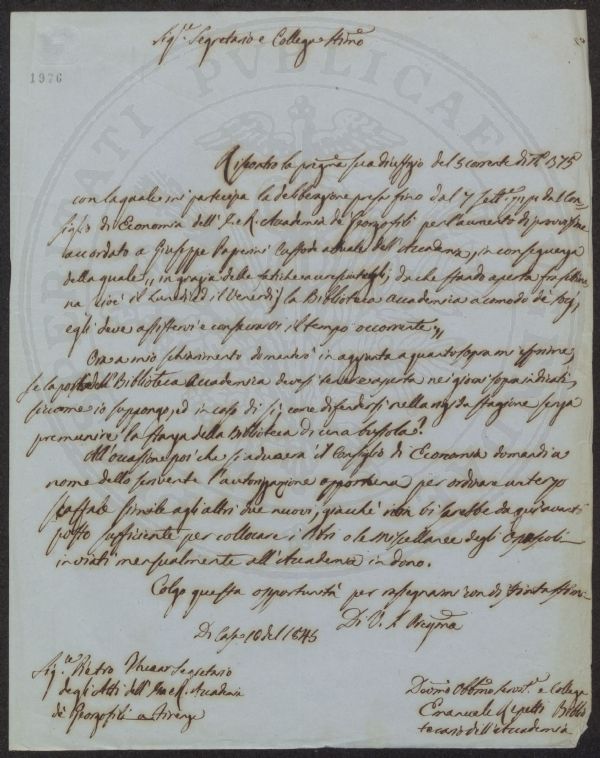 Sig.re Segretario e Collega Stimo
1976
Riscontro la pregma sua d'uffizio del 5 corrente di N.° 375
con la quale mi partecipa la deliberazione presa fino dal 7 Sett.e pp dal Con
siglio di Economia dell' I. e R. Accademia de' Georgofili per l'aumento di provvisione
accordato a Giuseppe Papini Custode attuale dell'Accademia, in conseguenza
della quale „ in grazia delle fatiche accresciutegli, da che stando aperta fra settima
na cioè il Lunedì ed il Venerdì la Biblioteca Accademica a comodo de' socj,
egli deve assistervi e consacrarvi il tempo occorrente „
Ora a mio schiarimento domando in aggiunta a quanto sopra mi esprime,
se la porta dell'Biblioteca Accademica devesi tenere aperta nei giorni sopra indicati,
siccome io suppongo, ed in caso di sì, come difendersi nella stagione senza
premunire la stanza della Biblioteca di una bussola?
All'occasione poi che si adunerà il Consiglio di Economia domandi a
nome dello scrivente l'autorizzazione opportuna per ordinare un terzo
scaffale simile agli altri due nuovi, giacchè non vi sarebbe da qui avanti
posto sufficiente per collocare i libri o le miscellanee degli Opuscoli
inviati mensualmente all'Accademia in dono.
Colgo questa opportunità per rassegnarmi con distinta stima
Di V. S. Pregma
Di Casa 10 del 1845
Sig.re Pietro Segretario
degli Atti dell' I. e R. Accademia
de' Georgofili a Firenze
Devmo Obbmo Servit.e e Collega
Emanuele Repetti Biblio
tecario dell'Accademia